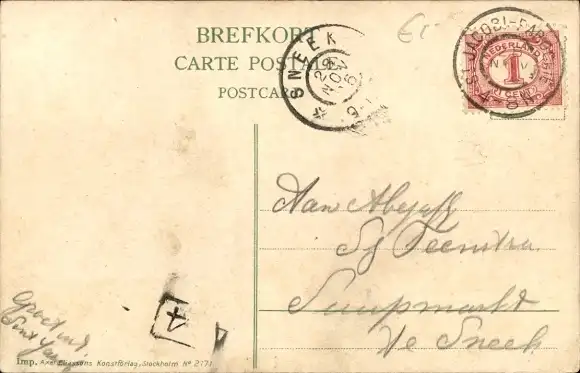 BREFKORT
CARTE POSTALE
POSTCARD
SNEEK
28 NOV 6
ST JACOBI-PAROCHIE
NEDERLAND
1
CENT
Aan
Sj Feenstra
Suupmarkt
te Sneek
Groet uit
Sint Jac
Imp. Axel Eliassons Konstförlag, Stockholm No 2171